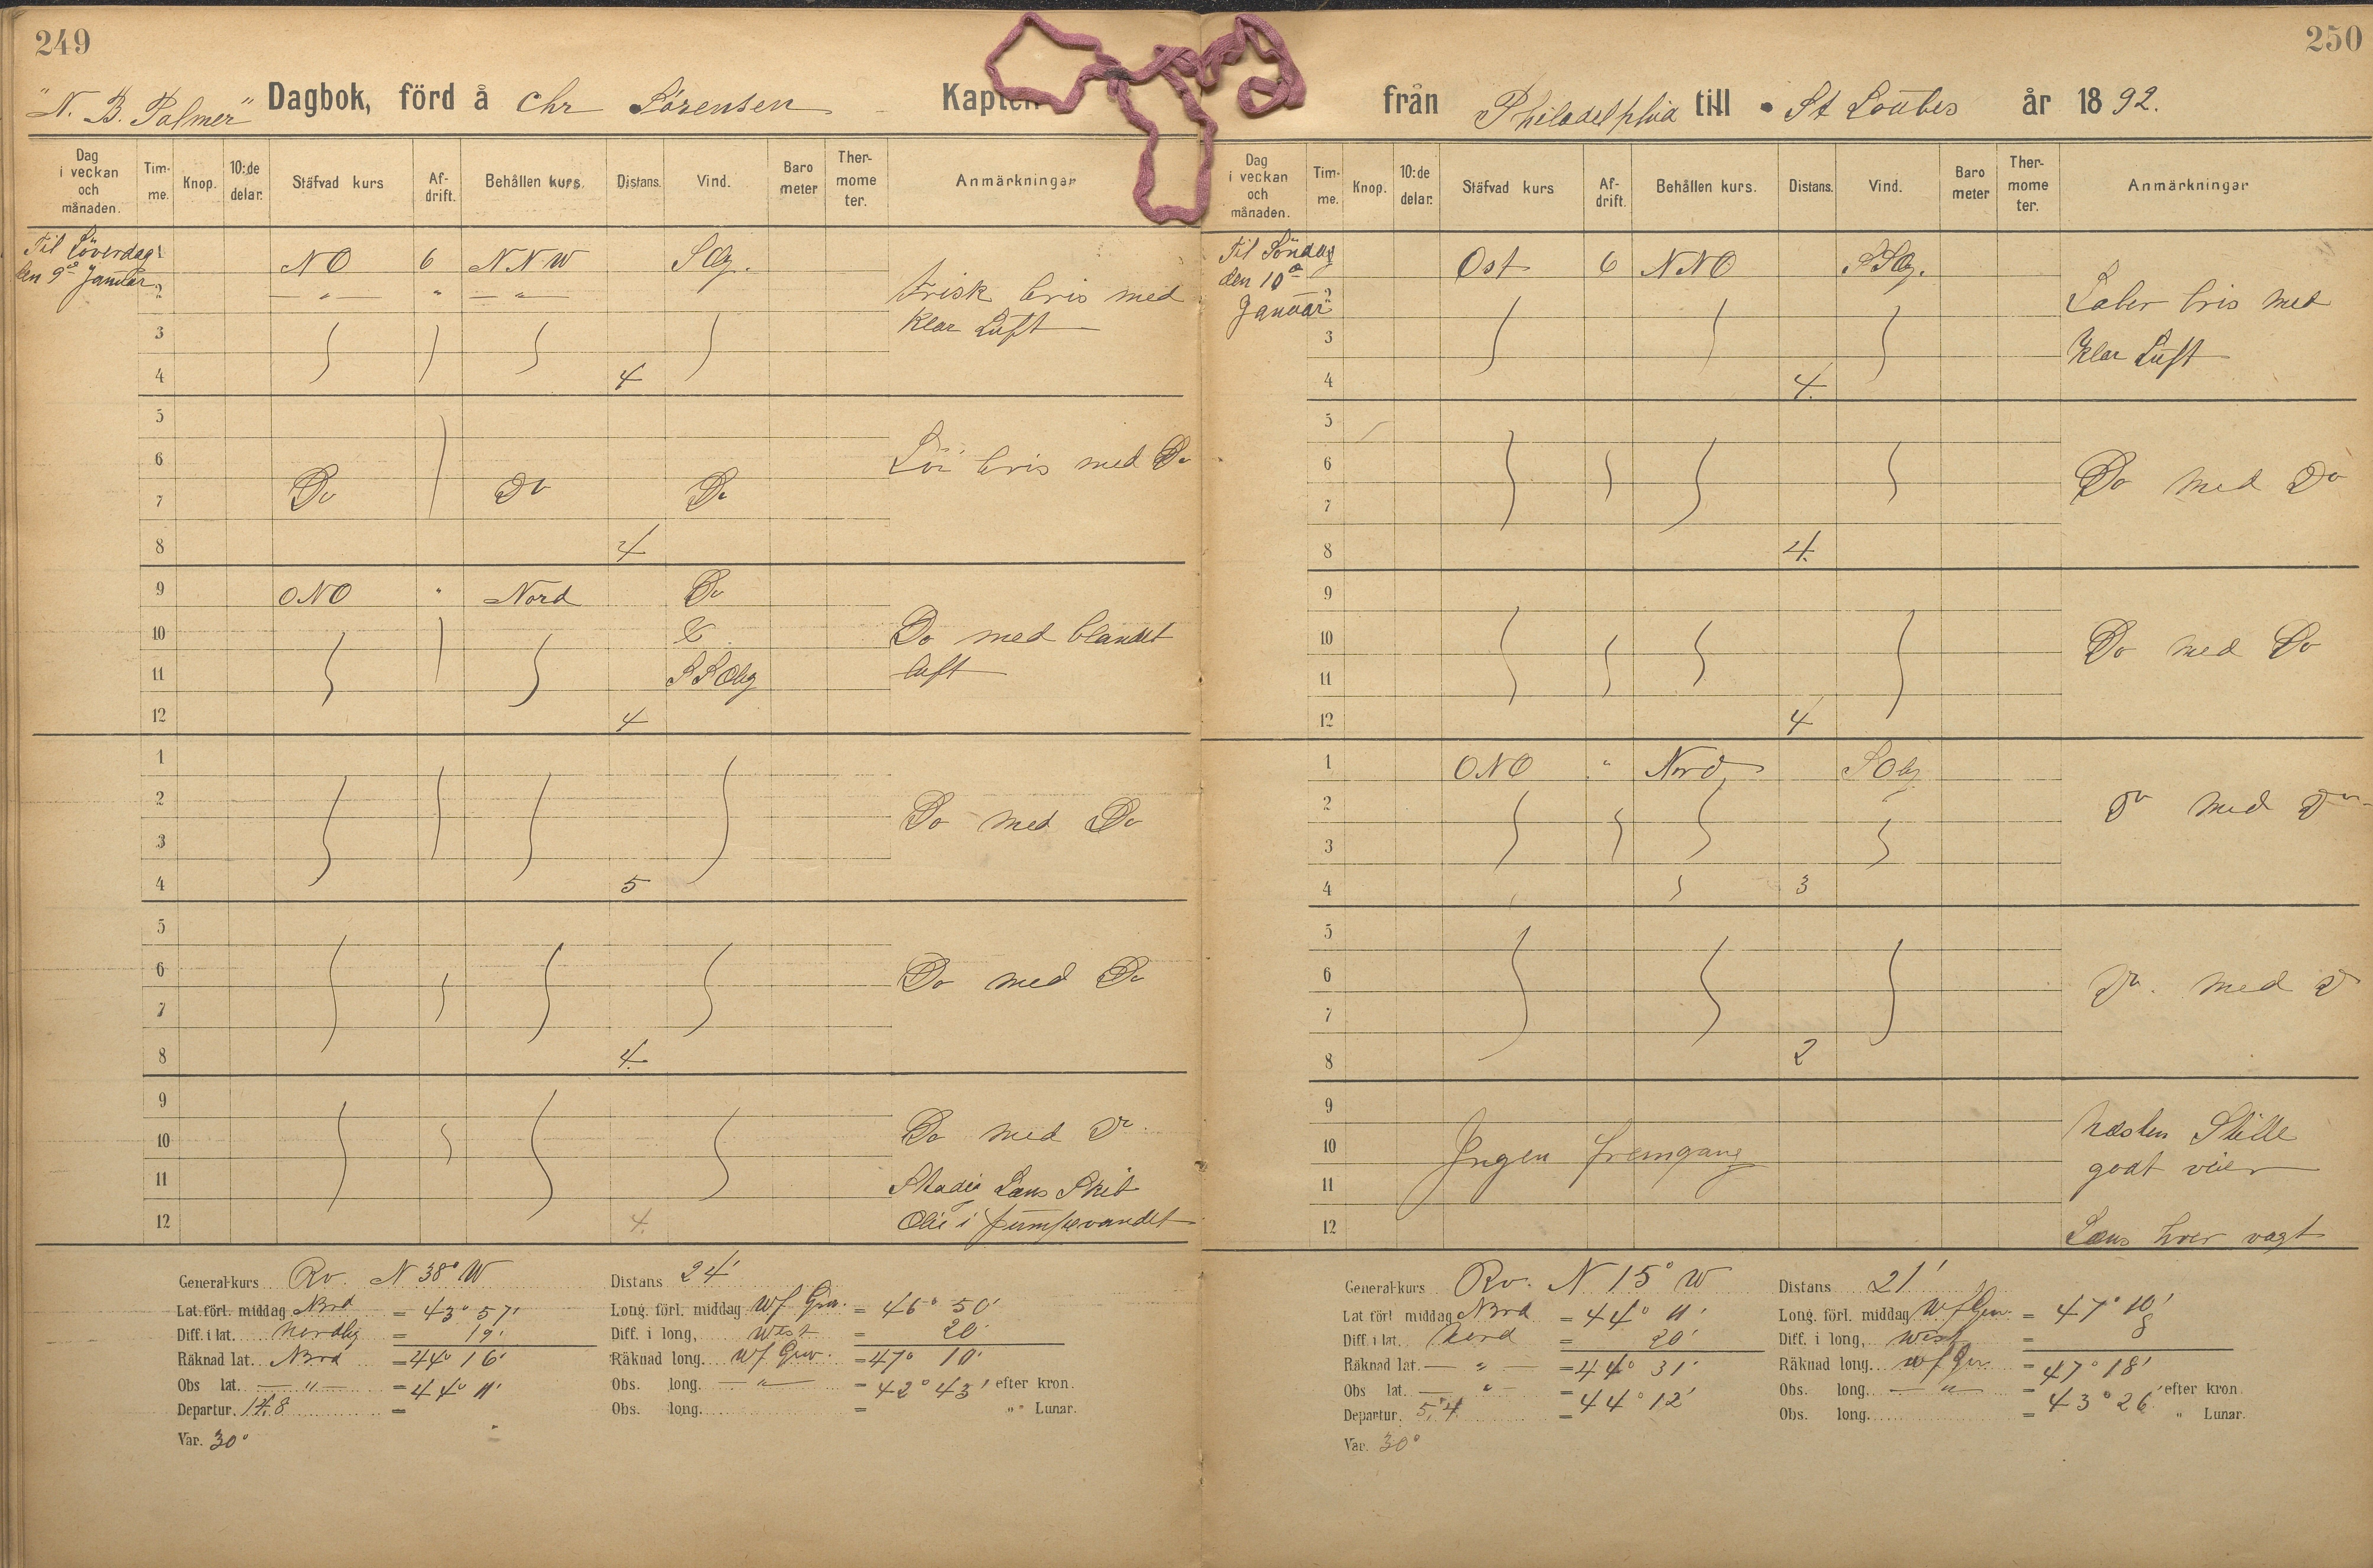 249
"N. B. Palmer" Dagbok, förd å Chr Sörensen Kapten
Dag i veckan och månaden. Tim-me. Knop. 10:de delar. Stäfvad kurs Af-drift. Behållen kurs. Distans. Vind. Baro meter Ther-mome ter. Anmärkningar
Til Löverdag 1 NO 6 NNW SOlg.
den 9de Januar 2 — " — " — " —
Frisk bris med
3 klar Luft
4 4
5
6 Löi bris med Do
7 Do Do Do
8 4
9 ONO " Nord Do
10 Do med blandet
11 SSOlig luft
12 4
1
2 Do med Do
3
4 5
5
6 Do med Do
7
8 4.
9
10 Do med Do.
11 Stadig Læns Skib
12 4. Olie i pumpevandet
General-kurs Rv. N 38° W Distans 24'
Lat. förl. middag Nord = 43° 57' Long. förl. middag W f Grw. = 46° 50'
Diff. i lat. nordlig = 19' Diff. i long, west = 20'
Räknad lat. Nord = 44° 16' Räknad long. W f Grw. = 47° 10'
Obs lat. — " — = 44° 11' Obs. long. — " — = 42° 43' efter kron.
Departur. 14.8 = Obs. long. = " Lunar.
Var. 30°
250
från Philadelphia till St Loubes år 1892.
Dag i veckan och månaden. Tim-me. Knop. 10:de delar. Stäfvad kurs Af-drift. Behållen kurs. Distans. Vind. Baro meter Ther-mome ter. Anmärkningar
Til Söndag 1 Ost 6 NNO SSOlg.
den 10de 2 Laber bris med
Januar
3 klar Luft
4 4.
5
6 Do med Do
7
8 4.
9
10 Do med Do
11
12 4
1 ONO " Nord SOlig
2 Do med Do
3
4 3
5
6 Do. med Do
7
8 2
9 Næsten Stille
10 Ingen fremgang godt veier
11
12 Læns hver vagt
General-kurs Rv. N 15° W Distans 21'
Lat förl middag Nord = 44° 11' Long. förl. middag W f Grw. = 47° 10'
Diff i lat. Nord = 20' Diff. i long, west = 8
Räknad lat. — " — = 44° 31' Räknad long. W f Gr. = 47° 18'
Obs lat. — " — = 44° 12' Obs. long. — " — = 43° 26' efter kron.
Departur. 5,4 = Obs. long. = " Lunar.
Var. 30°